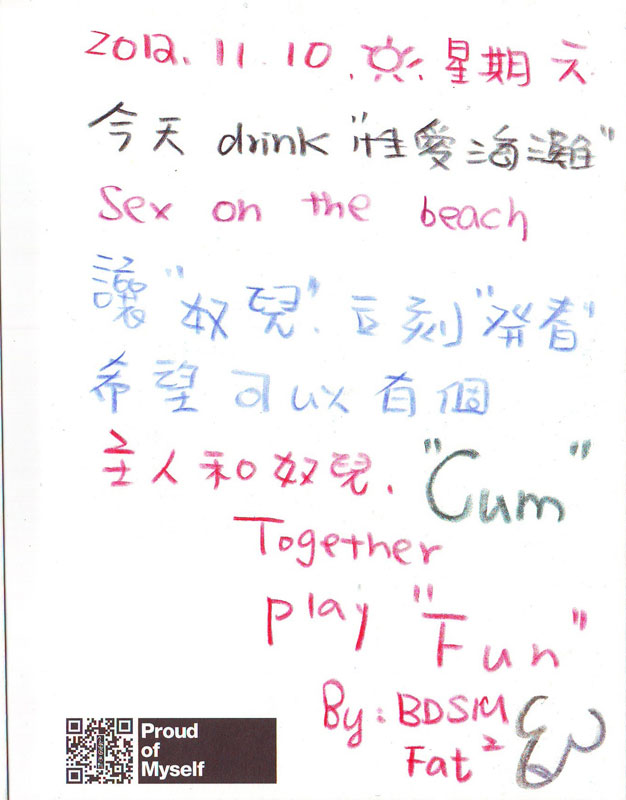 2012. 11. 10. 星期六
今天 drink "性愛海灘"
Sex on the beach
讓 "奴兒". 立刻 "發春"
希望可以有個
主人和奴兒. "Cum"
Together
play "Fun"
By: BDSM
Fat²
Proud
of
Myself